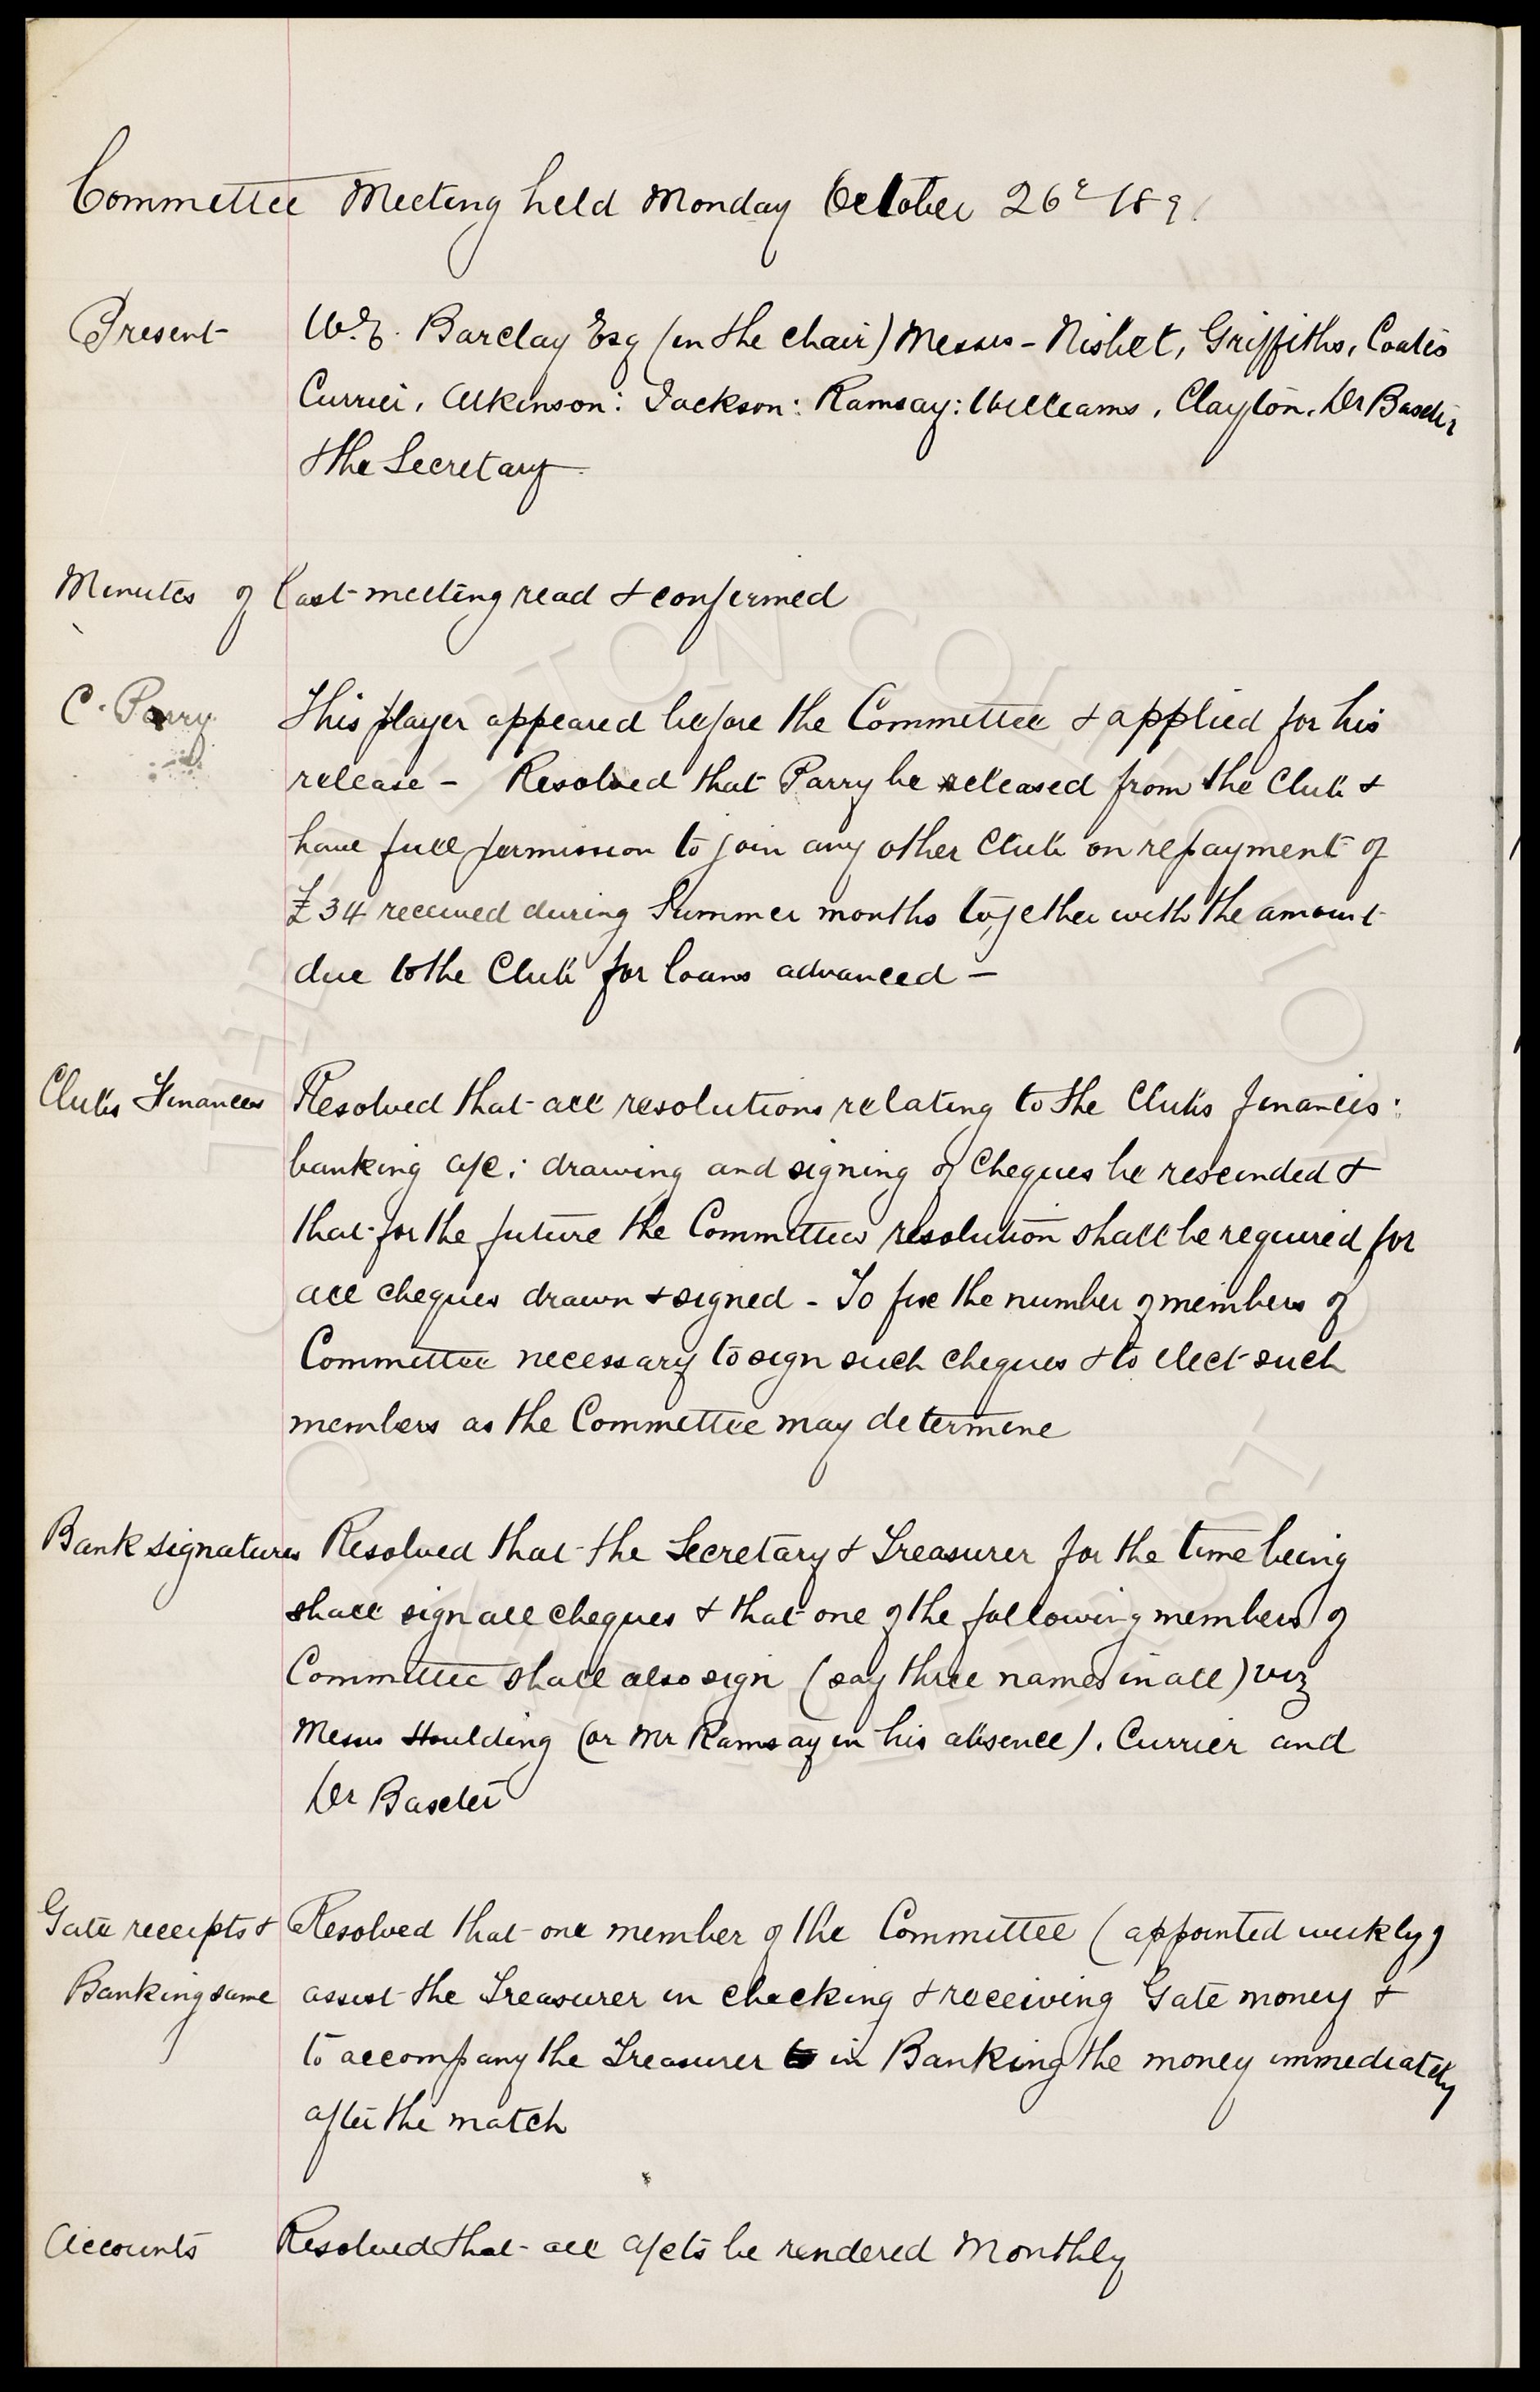 Committee Meeting held Monday October 26th 1891
Present W.E. Barclay Esq (in the chair) Messrs - Nisbet, Griffiths, Coates
Currier, Atkinson: Jackson: Ramsay: Williams, Clayton, Dr Baxter
& the Secretary -
Minutes of last meeting read & confirmed
C. Parry This player appeared before the Committee & applied for his
release - Resolved that Parry be released from the Club &
have full permission to join any other Club on repayment of
£34 received during Summer months together with the amount
due to the Club for loans advanced -
Clubs Finances Resolved that all resolutions relating to the Clubs finances:
banking a/c: drawing and signing of Cheques be rescinded &
that for the future the Committees resolution shall be required for
all cheques drawn & signed - To fix the number of members of
Committee necessary to sign such cheques & to elect such
members as the Committee may determine
Bank signatures Resolved that the Secretary & Treasurer for the time being
shall sign all cheques & that one of the following members of
Committee shall also sign (say three names in all) viz
Messrs Houlding (or Mr Ramsay in his absence), Currier and
Dr Baxter
Gate receipts & Resolved that one member of the Committee (appointed weekly)
Banking same assist the Treasurer in checking & receiving Gate money &
to accompany the Treasurer to in Banking the money immediately
after the match
Accounts Resolved that all a/cts be rendered Monthly